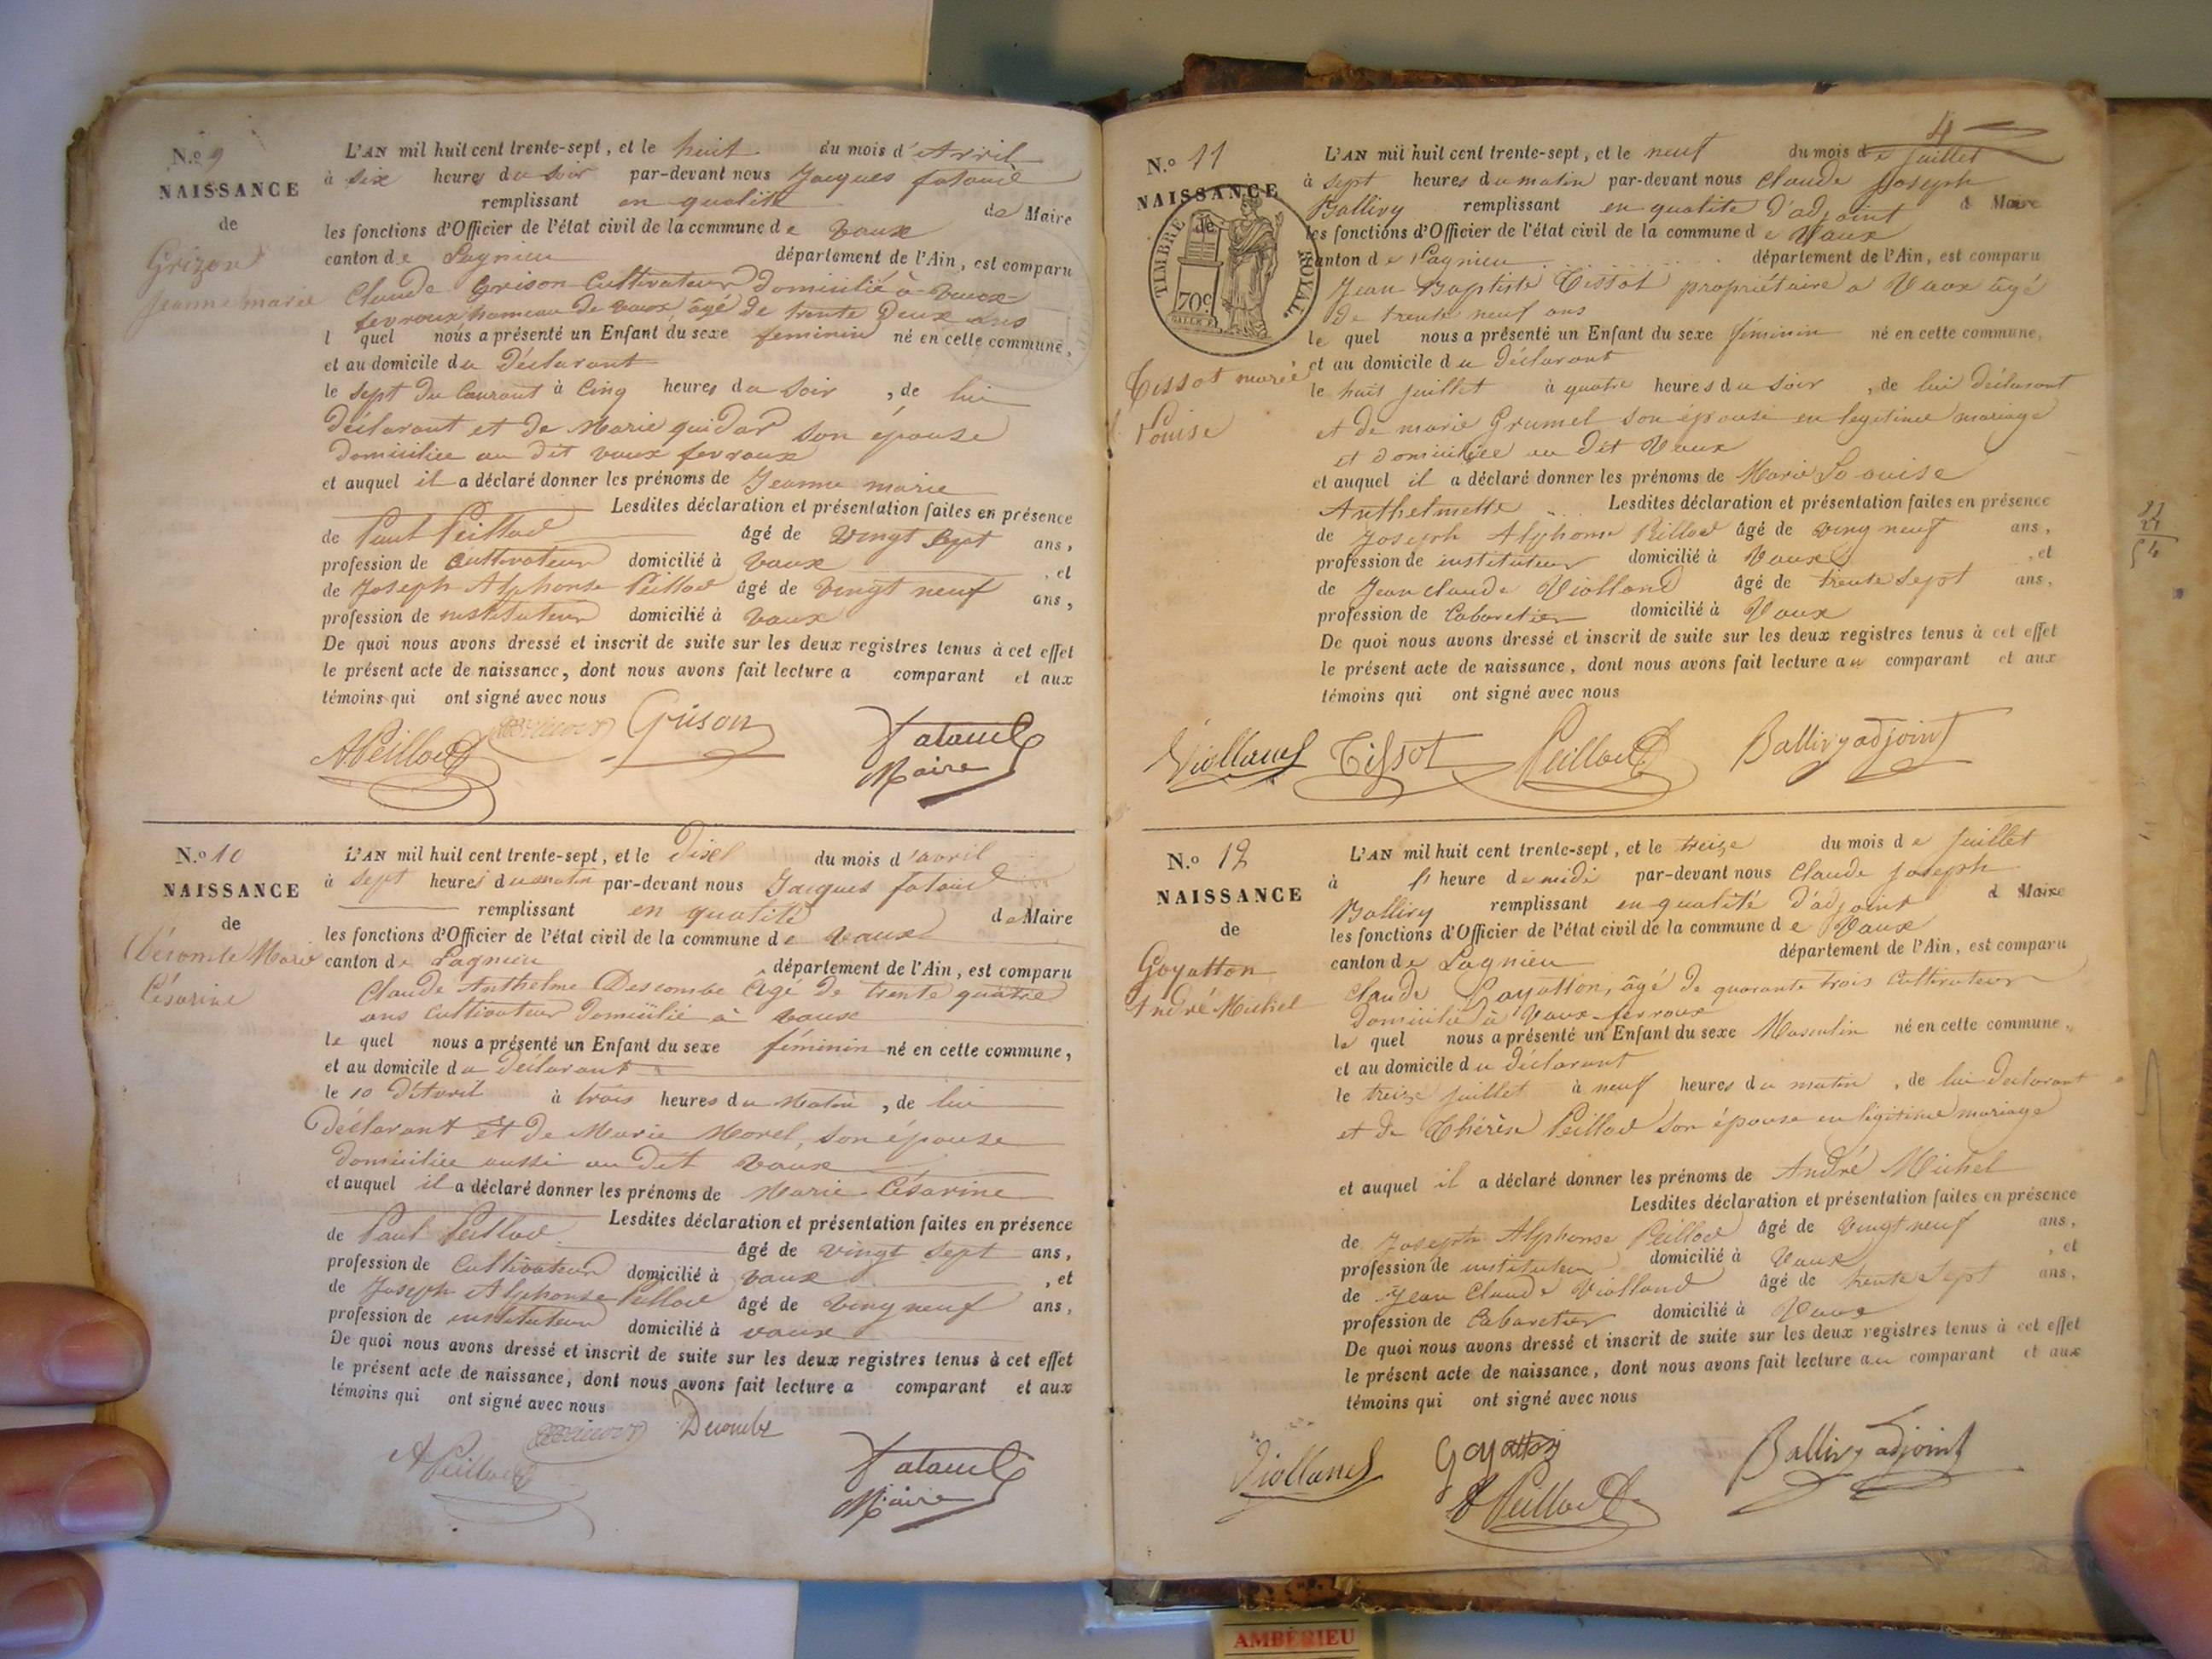 N.º 9
NAISSANCE
de
Grizon
Jeanne marie
L'AN mil huit cent trente-sept, et le huit du mois d'Avril
à six heures du soir par-devant nous Jacques
remplissant en qualité de Maire
les fonctions d'Officier de l'état civil de la commune de Vaux
canton de Lagnieu département de l'Ain, est comparu
Claude Grison Cultivateur domicilié à Vaux
fevroux hameau de vaux âgé de trente deux ans
l quel nous a présenté un Enfant du sexe feminin né en cette commune,
et au domicile du Déclarant
le sept du Courant à Cinq heures du soir, de lui
déclarant et de Marie quidar son épouse
domiciliée au dit vaux fevroux
et auquel il a déclaré donner les prénoms de Jeanne marie
Lesdites déclaration et présentation faites en présence
de Paul Peillod âgé de Vingt Sept ans,
profession de Cultivateur domicilié à Vaux, et
de Joseph Alphonse Peillod âgé de Vingt neuf ans,
profession de instituteur domicilié à Vaux
De quoi nous avons dressé et inscrit de suite sur les deux registres tenus à cet effet
le présent acte de naissance, dont nous avons fait lecture a comparant et aux
témoins qui ont signé avec nous
APeillod Grison
Maire
N.º 10
NAISSANCE
de
Décombe Marie
Césarine
L'AN mil huit cent trente-sept, et le dix du mois d'avril
à sept heures du matin par-devant nous Jacques
remplissant en qualité de Maire
les fonctions d'Officier de l'état civil de la commune de Vaux
canton de Lagnieu département de l'Ain, est comparu
Claude Anthelme Descombe âgé de trente quatre
ans cultivateur domicilié à vaux
le quel nous a présenté un Enfant du sexe féminin né en cette commune,
et au domicile du Déclarant
le 10 d'Avril à trois heures du Matin, de lui
déclarant et de Marie Morel, son épouse
domiciliée aussi au dit Vaux
et auquel il a déclaré donner les prénoms de Marie Césarine
Lesdites déclaration et présentation faites en présence
de Paul Peillod âgé de vingt sept ans,
profession de Cultivateur domicilié à vaux, et
de Joseph Alphonse Peillod âgé de Vingt neuf ans,
profession de instituteur domicilié à vaux
De quoi nous avons dressé et inscrit de suite sur les deux registres tenus à cet effet
le présent acte de naissance, dont nous avons fait lecture a comparant et aux
témoins qui ont signé avec nous
Decombe
APeillod
Maire
4
N.º 11
NAISSANCE
de
TIMBRE ROYAL.
70c
Tissot marie
Louise
L'AN mil huit cent trente-sept, et le neuf du mois de Juillet
à sept heures du matin par-devant nous Claude Joseph
Ballivy remplissant en qualité d'adjoint d Maire
les fonctions d'Officier de l'état civil de la commune de Vaux
canton de Lagnieu département de l'Ain, est comparu
Jean Baptiste Tissot propriétaire a Vaux âgé
de trente neuf ans
le quel nous a présenté un Enfant du sexe féminin né en cette commune,
et au domicile du déclarant
le huit juillet à quatre heures du soir, de lui déclarant
et de marie Grumel son épouse en legitime mariage
et domiciliée au dit Vaux
et auquel il a déclaré donner les prénoms de Marie Louise
Anthelmette Lesdites déclaration et présentation faites en présence
de Joseph Alphonse Peillod âgé de ving neuf ans,
profession de instituteur domicilié à Vaux, et
de Jean claude Violland âgé de trente sept ans,
profession de Cabaretier domicilié à Vaux
De quoi nous avons dressé et inscrit de suite sur les deux registres tenus à cet effet
le présent acte de naissance, dont nous avons fait lecture au comparant et aux
témoins qui ont signé avec nous
Violland Tissot Peillod Ballivy adjoint
N.º 12
NAISSANCE
de
Goyatton
André Michel
L'AN mil huit cent trente-sept, et le treize du mois de Juillet
à heure de midi par-devant nous Claude Joseph
Ballivy remplissant en qualité d'adjoint d Maire
les fonctions d'Officier de l'état civil de la commune de Vaux
canton de Lagnieu département de l'Ain, est comparu
Claude Goyatton, âgé de quarante trois cultivateur
domicilié à Vaux-fevroux
le quel nous a présenté un Enfant du sexe Masculin né en cette commune,
et au domicile du déclarant
le treize juillet à neuf heures du matin, de lui declarant
et de Thérèse Peillod son épouse en légitime mariage
et auquel il a déclaré donner les prénoms de André Michel
Lesdites déclaration et présentation faites en présence
de Joseph Alphonse Peillod âgé de vingt neuf ans,
profession de instituteur domicilié à Vaux, et
de Jean Claude Violland âgé de trente sept ans,
profession de Cabaretier domicilié à Vaux
De quoi nous avons dressé et inscrit de suite sur les deux registres tenus à cet effet
le présent acte de naissance, dont nous avons fait lecture au comparant et aux
témoins qui ont signé avec nous
Violland Goyatton Ballivy adjoint
APeillod
AMBÉRIEU